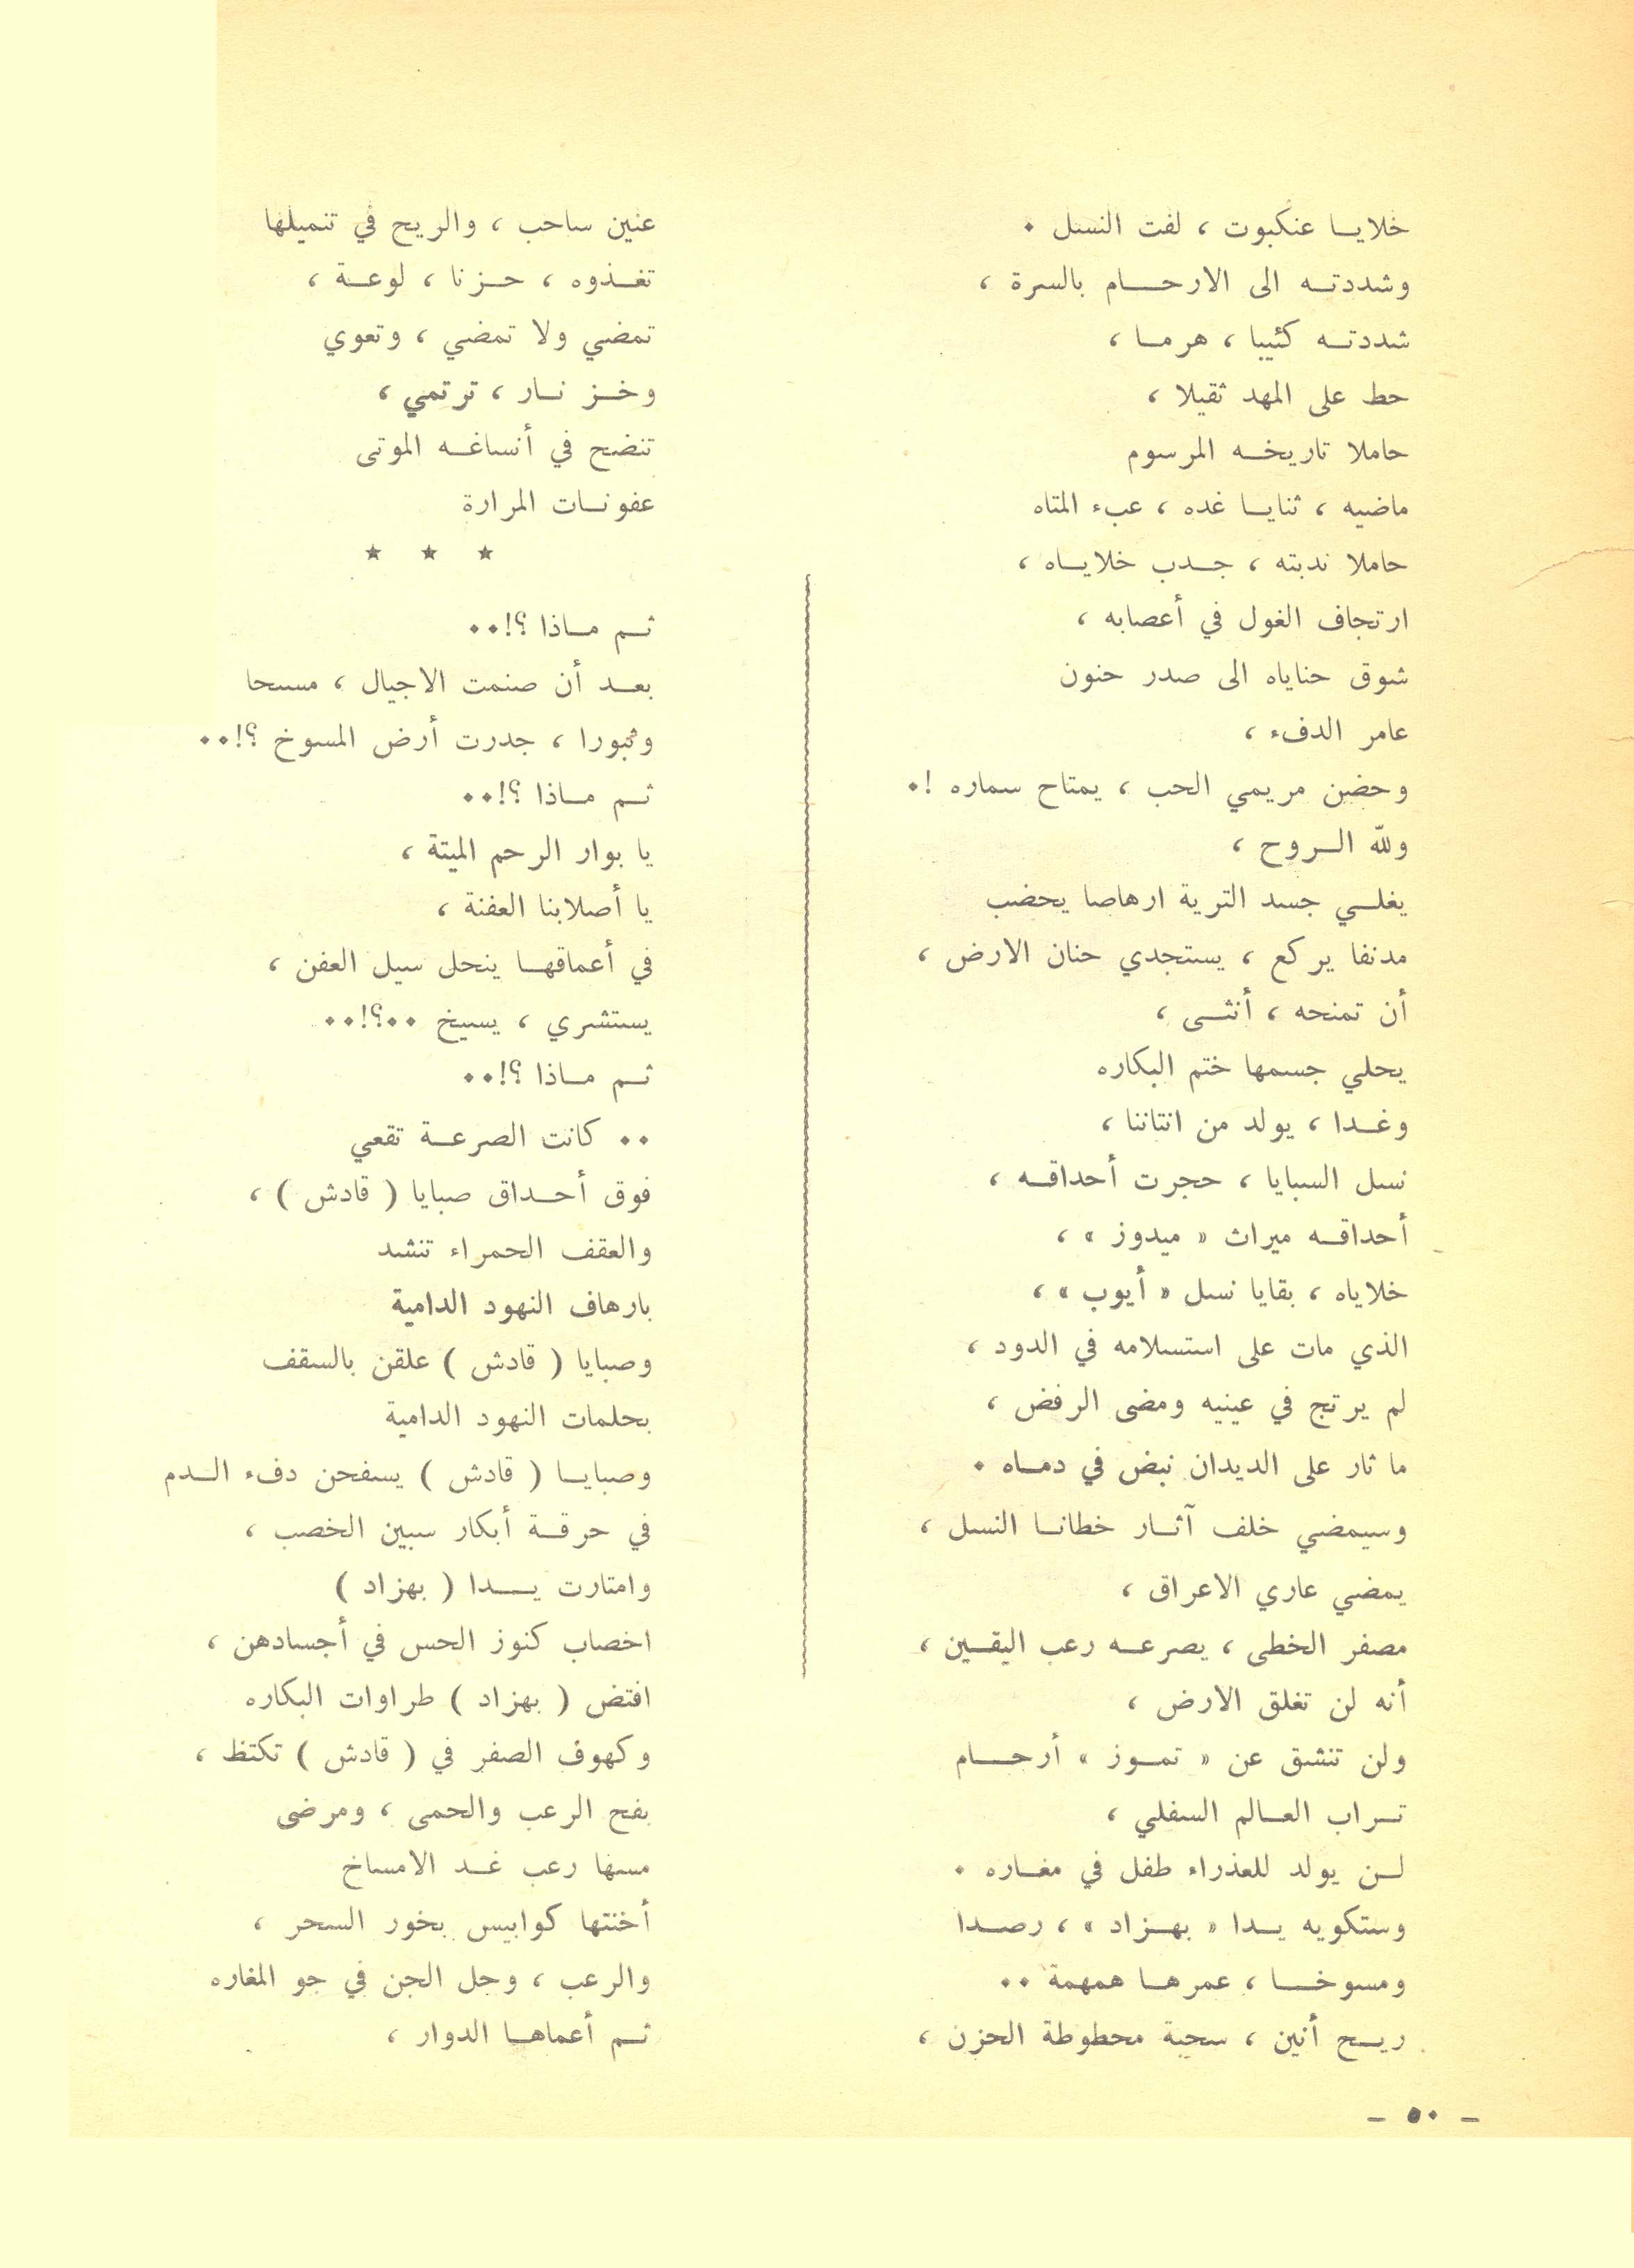 خلايا عنكبوت ، لفت النسل .
وشددته الى الارحام بالسرة ،
شددته كئيبا ، هرما ،
حط على المهد ثقيلا ،
حاملا تاريخه المرسوم
ماضيه ، ثنايا غده ، عبء المتاه
حاملا ندبته ، جدب خلاياه ،
ارتجاف الغول في أعصابه ،
شوق حناياه الى صدر حنون
عامر الدفء ،
وحضن مريمي الحب ، يمتاح سماره !.
ولله الروح ،
يغلي جسد التربة ارهاصا يحضب
مدنفا يركع ، يستجدي حنان الارض ،
أن تمنحه ، أنثى ،
يحلي جسمها ختم البكاره
وغدا ، يولد من انتاننا ،
نسل السبايا ، حجرت أحداقه ،
أحداقه ميراث « ميدوز » ،
خلاياه ، بقايا نسل « أيوب » ،
الذي مات على استسلامه في الدود ،
لم يرتج في عينيه ومضى الرفض ،
ما ثار على الديدان نبض في دماه .
وسيمضي خلف آثار خطانا النسل ،
يمضي عاري الاعراق ،
مصفر الخطى ، يصرعه رعب اليقين ،
أنه لن تغلق الارض ،
ولن تنشق عن « تموز » أرحام
تراب العالم السفلي ،
لن يولد للعذراء طفل في مغاره .
وستكويه يدا « بهزاد » ، رصدا
ومسوخا ، عمرها همهمة ..
ريح أنين ، سحبة محطوطة الحزن ،
عنين ساحب ، والريح في تنميلها
تغذوه ، حزنا ، لوعة ،
تمضي ولا تمضي ، وتعوي
وخز نار ، ترتمي ،
تنضح في أنساغه الموتى
عفونات المرارة
★ ★ ★
ثم ماذا ؟!..
بعد أن صنمت الاجيال ، مسحا
وثبورا ، جدرت أرض المسوخ ؟!..
ثم ماذا ؟!..
يا بوار الرحم الميتة ،
يا أصلابنا العفنة ،
في أعماقها ينحل سيل العفن ،
يستشري ، يسيخ ..؟!..
ثم ماذا ؟!..
.. كانت الصرعة تقعي
فوق أحداق صبايا ( قادش ) ،
والعقف الحمراء تنشد
بارهاف النهود الدامية
وصبايا ( قادش ) علقن بالسقف
بحلمات النهود الدامية
وصبايا ( قادش ) يسفحن دفء الدم
في حرقة أبكار سبين الخصب ،
وامتارت يدا ( بهزاد )
اخصاب كنوز الحس في أجسادهن ،
افتض ( بهزاد ) طراوات البكاره
وكهوف الصفر في ( قادش ) تكتظ ،
بفح الرعب والحمى ، ومرضى
مسها رعب غد الامساخ
أخنتها كوابيس بخور السحر ،
والرعب ، وحل الجن في جو المغاره
ثم أعماها الدوار ،
- ٥٠ -